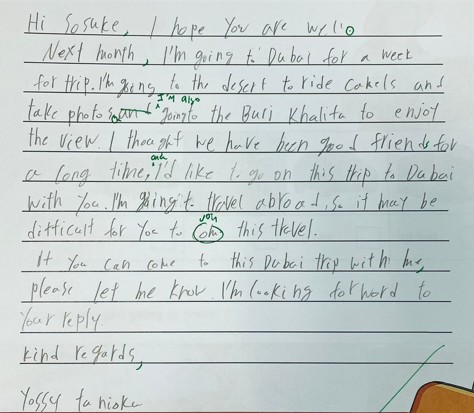 Hi Sosuke, I hope You are well.
Next month, I'm going to Dubai for a week
for trip. I'm going to the desert to ride camels and
I'm also
take photos and going to the Burj Khalifa to enjoy
the view. I thought we have been good friends for
and
a long time, I'd like to go on this trip to Dubai
with you. I'm going to travel abroad, so it may be
you
difficult for You to on this travel.
If You can come to this Dubai trip with me,
please let me know. I'm looking forward to
Your reply.
kind regards,
Yossy tanioka